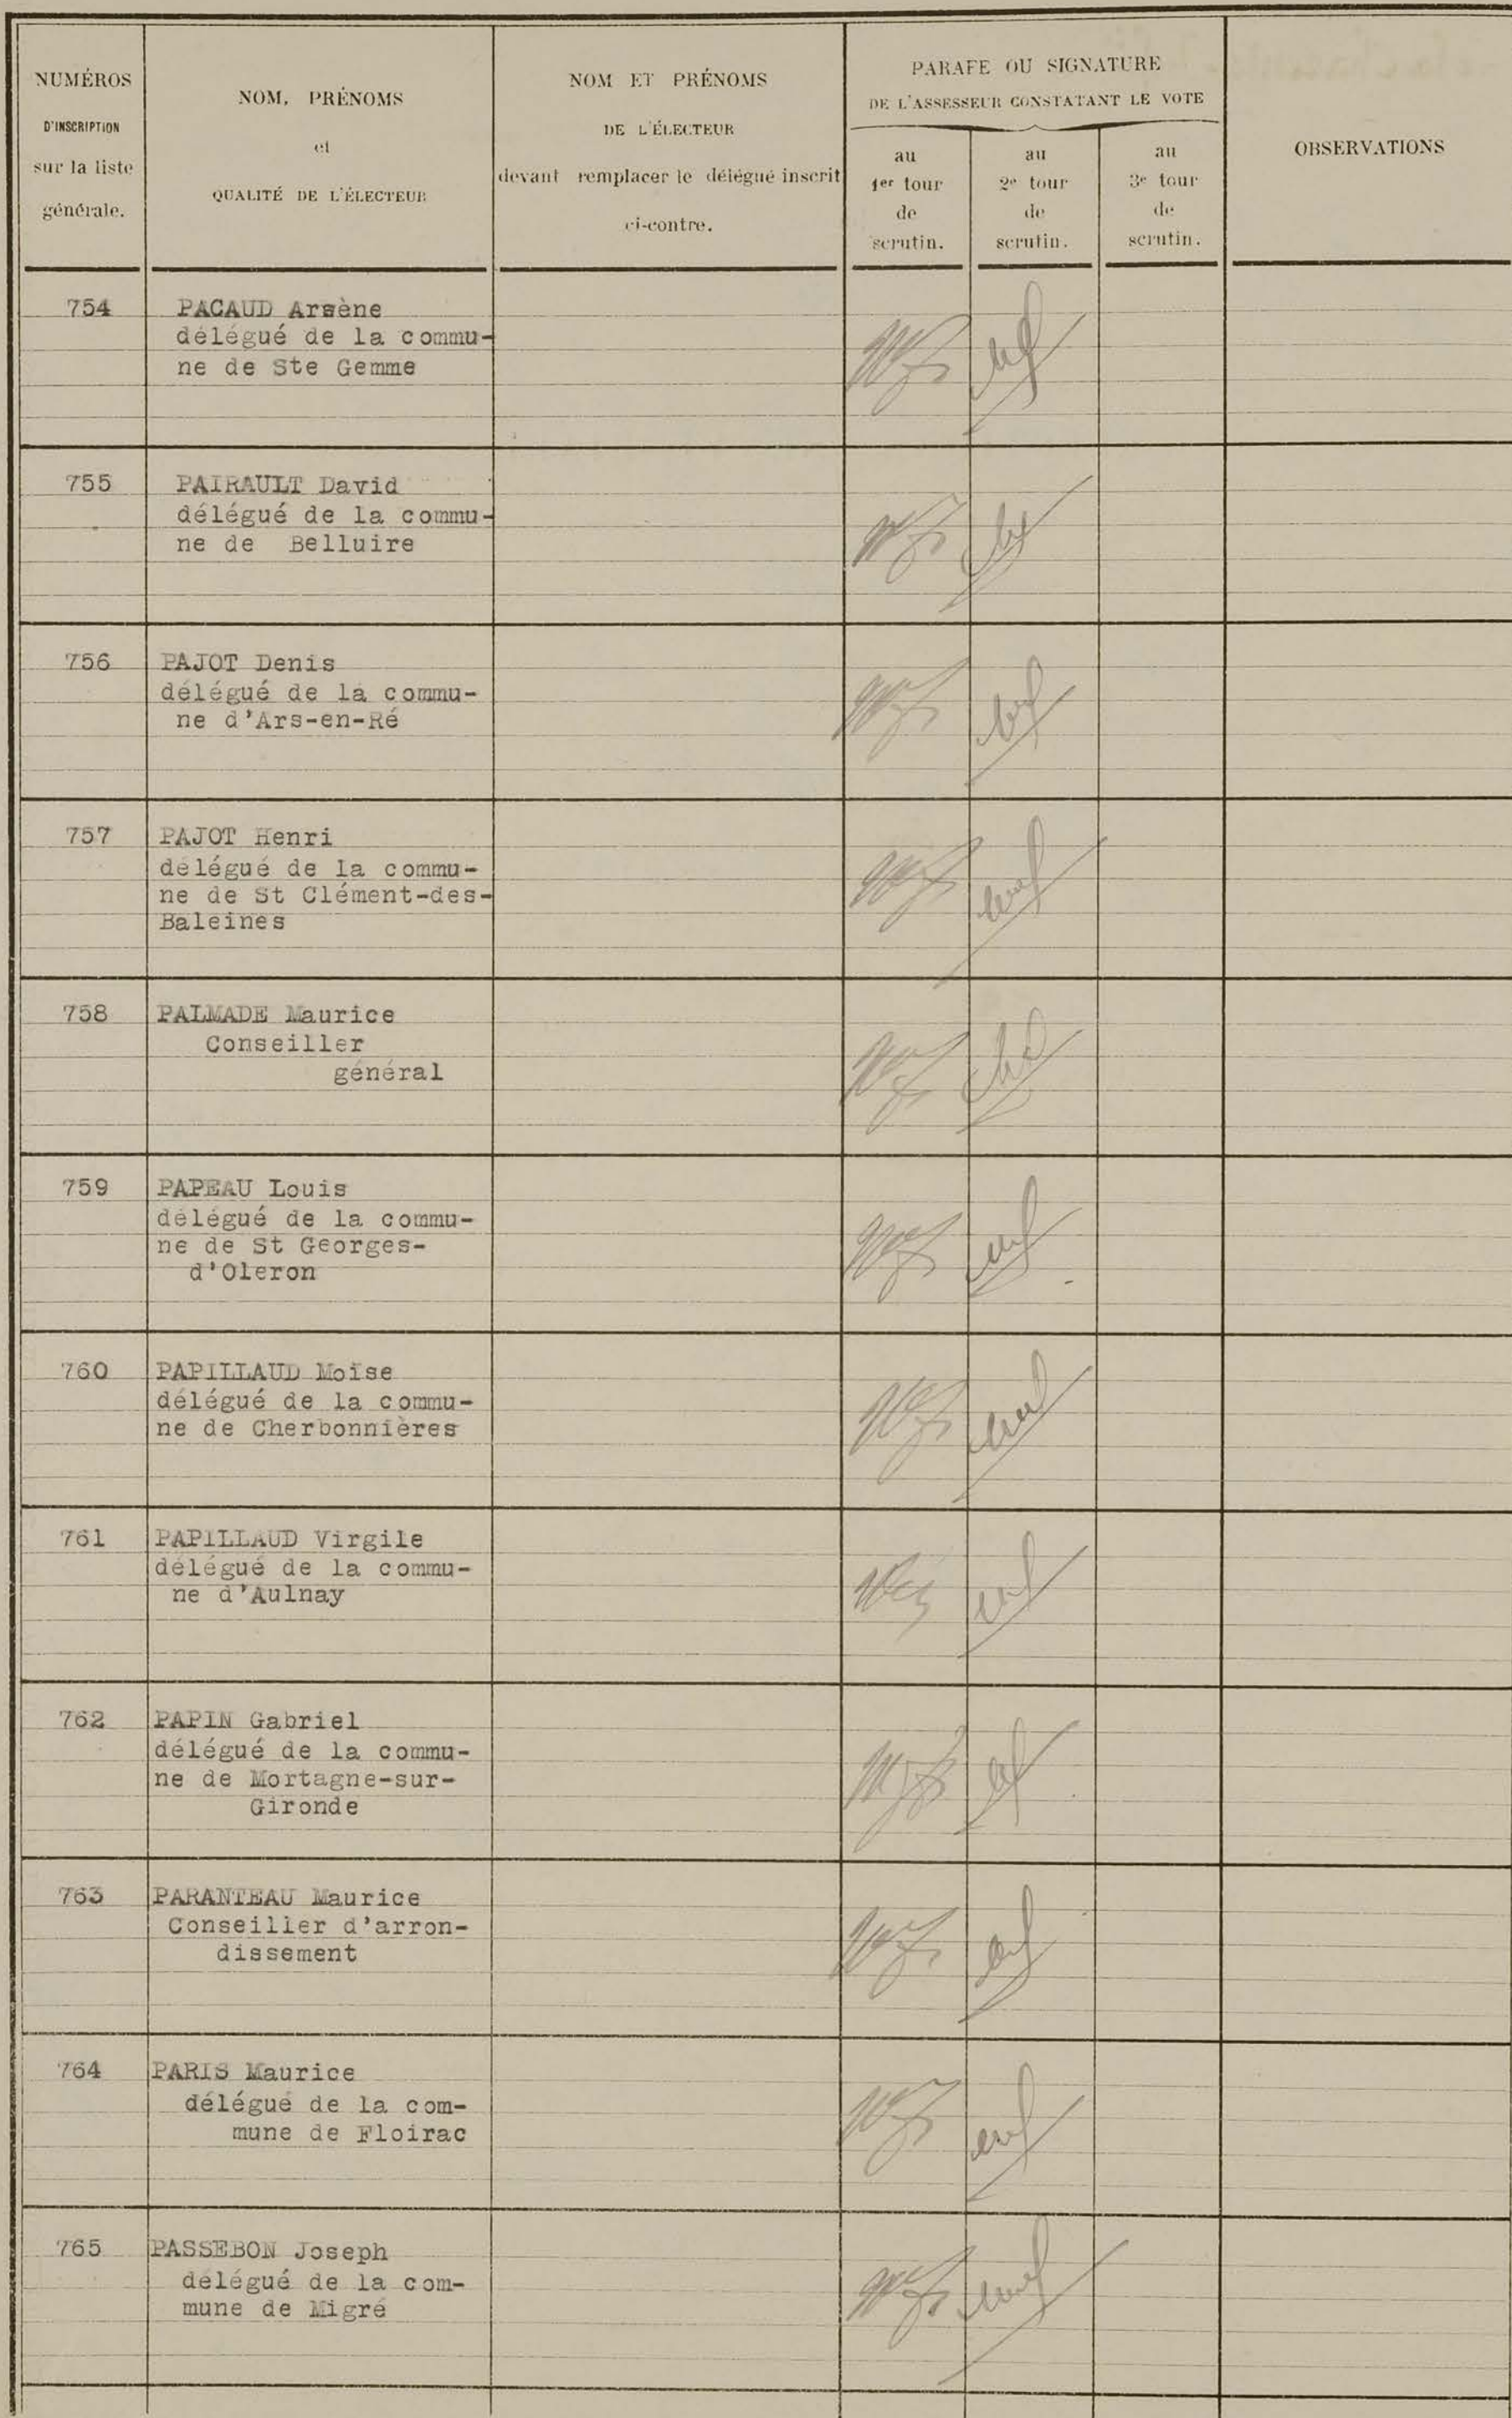 NUMÉROS
D'INSCRIPTION
sur la liste
générale.
NOM, PRÉNOMS
et
QUALITÉ DE L'ÉLECTEUR
NOM ET PRÉNOMS
DE L'ÉLECTEUR
devant remplacer le délégué inscrit
ci-contre.
PARAFE OU SIGNATURE
DE L'ASSESSEUR CONSTATANT LE VOTE
au
1er tour
de
scrutin.
au
2e tour
de
scrutin.
au
3e tour
de
scrutin.
OBSERVATIONS
754
PACAUD Arsène
délégué de la commu-
ne de Ste Gemme
755
PAIRAULT David
délégué de la commu-
ne de Belluire
756
PAJOT Denis
délégué de la commu-
ne d'Ars-en-Ré
757
PAJOT Henri
délégué de la commu-
ne de St Clément-des-
Baleines
758
PALMADE Maurice
Conseiller
général
759
PAPEAU Louis
délégué de la commu-
ne de St Georges-
d'Oleron
760
PAPILLAUD Moïse
délégué de la commu-
ne de Cherbonnières
761
PAPILLAUD Virgile
délégué de la commu-
ne d'Aulnay
762
PAPIN Gabriel
délégué de la commu-
ne de Mortagne-sur-
Gironde
763
PARANTEAU Maurice
Conseiller d'arron-
dissement
764
PARIS Maurice
délégué de la com-
mune de Floirac
765
PASSEBON Joseph
délégué de la com-
mune de Migré